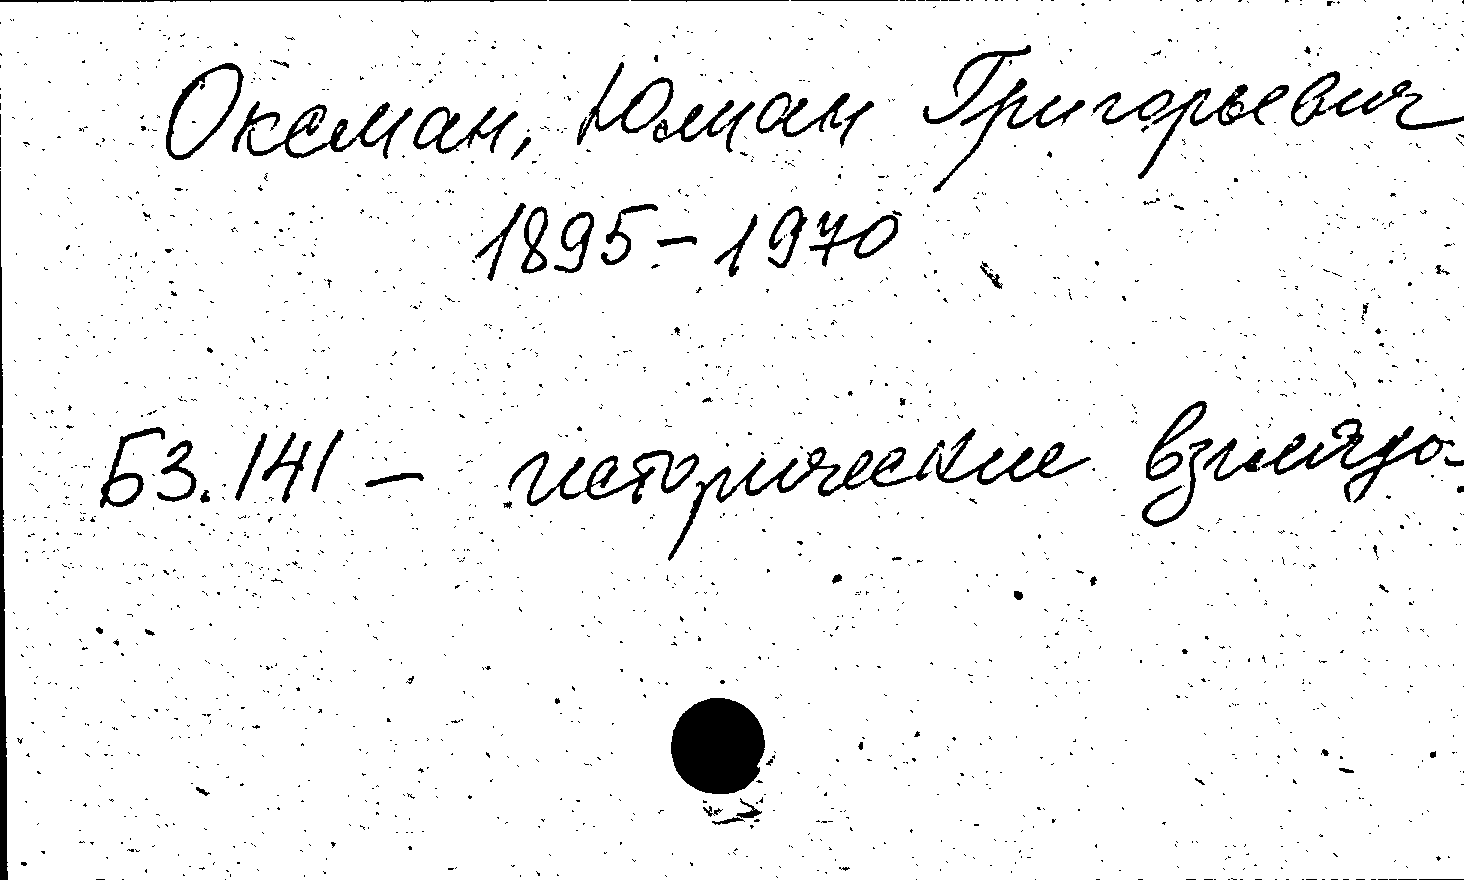 Оксман, Юлиан Григорьевич
1895-1970
Б3.141 - исторические взгляды